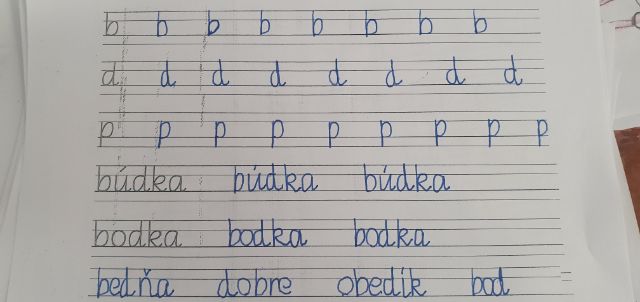 b b b b b b b b
d d d d d d d d
p p p p p p p p p
búdka búdka búdka
bodka bodka bodka
bedňa dobre obedík bod